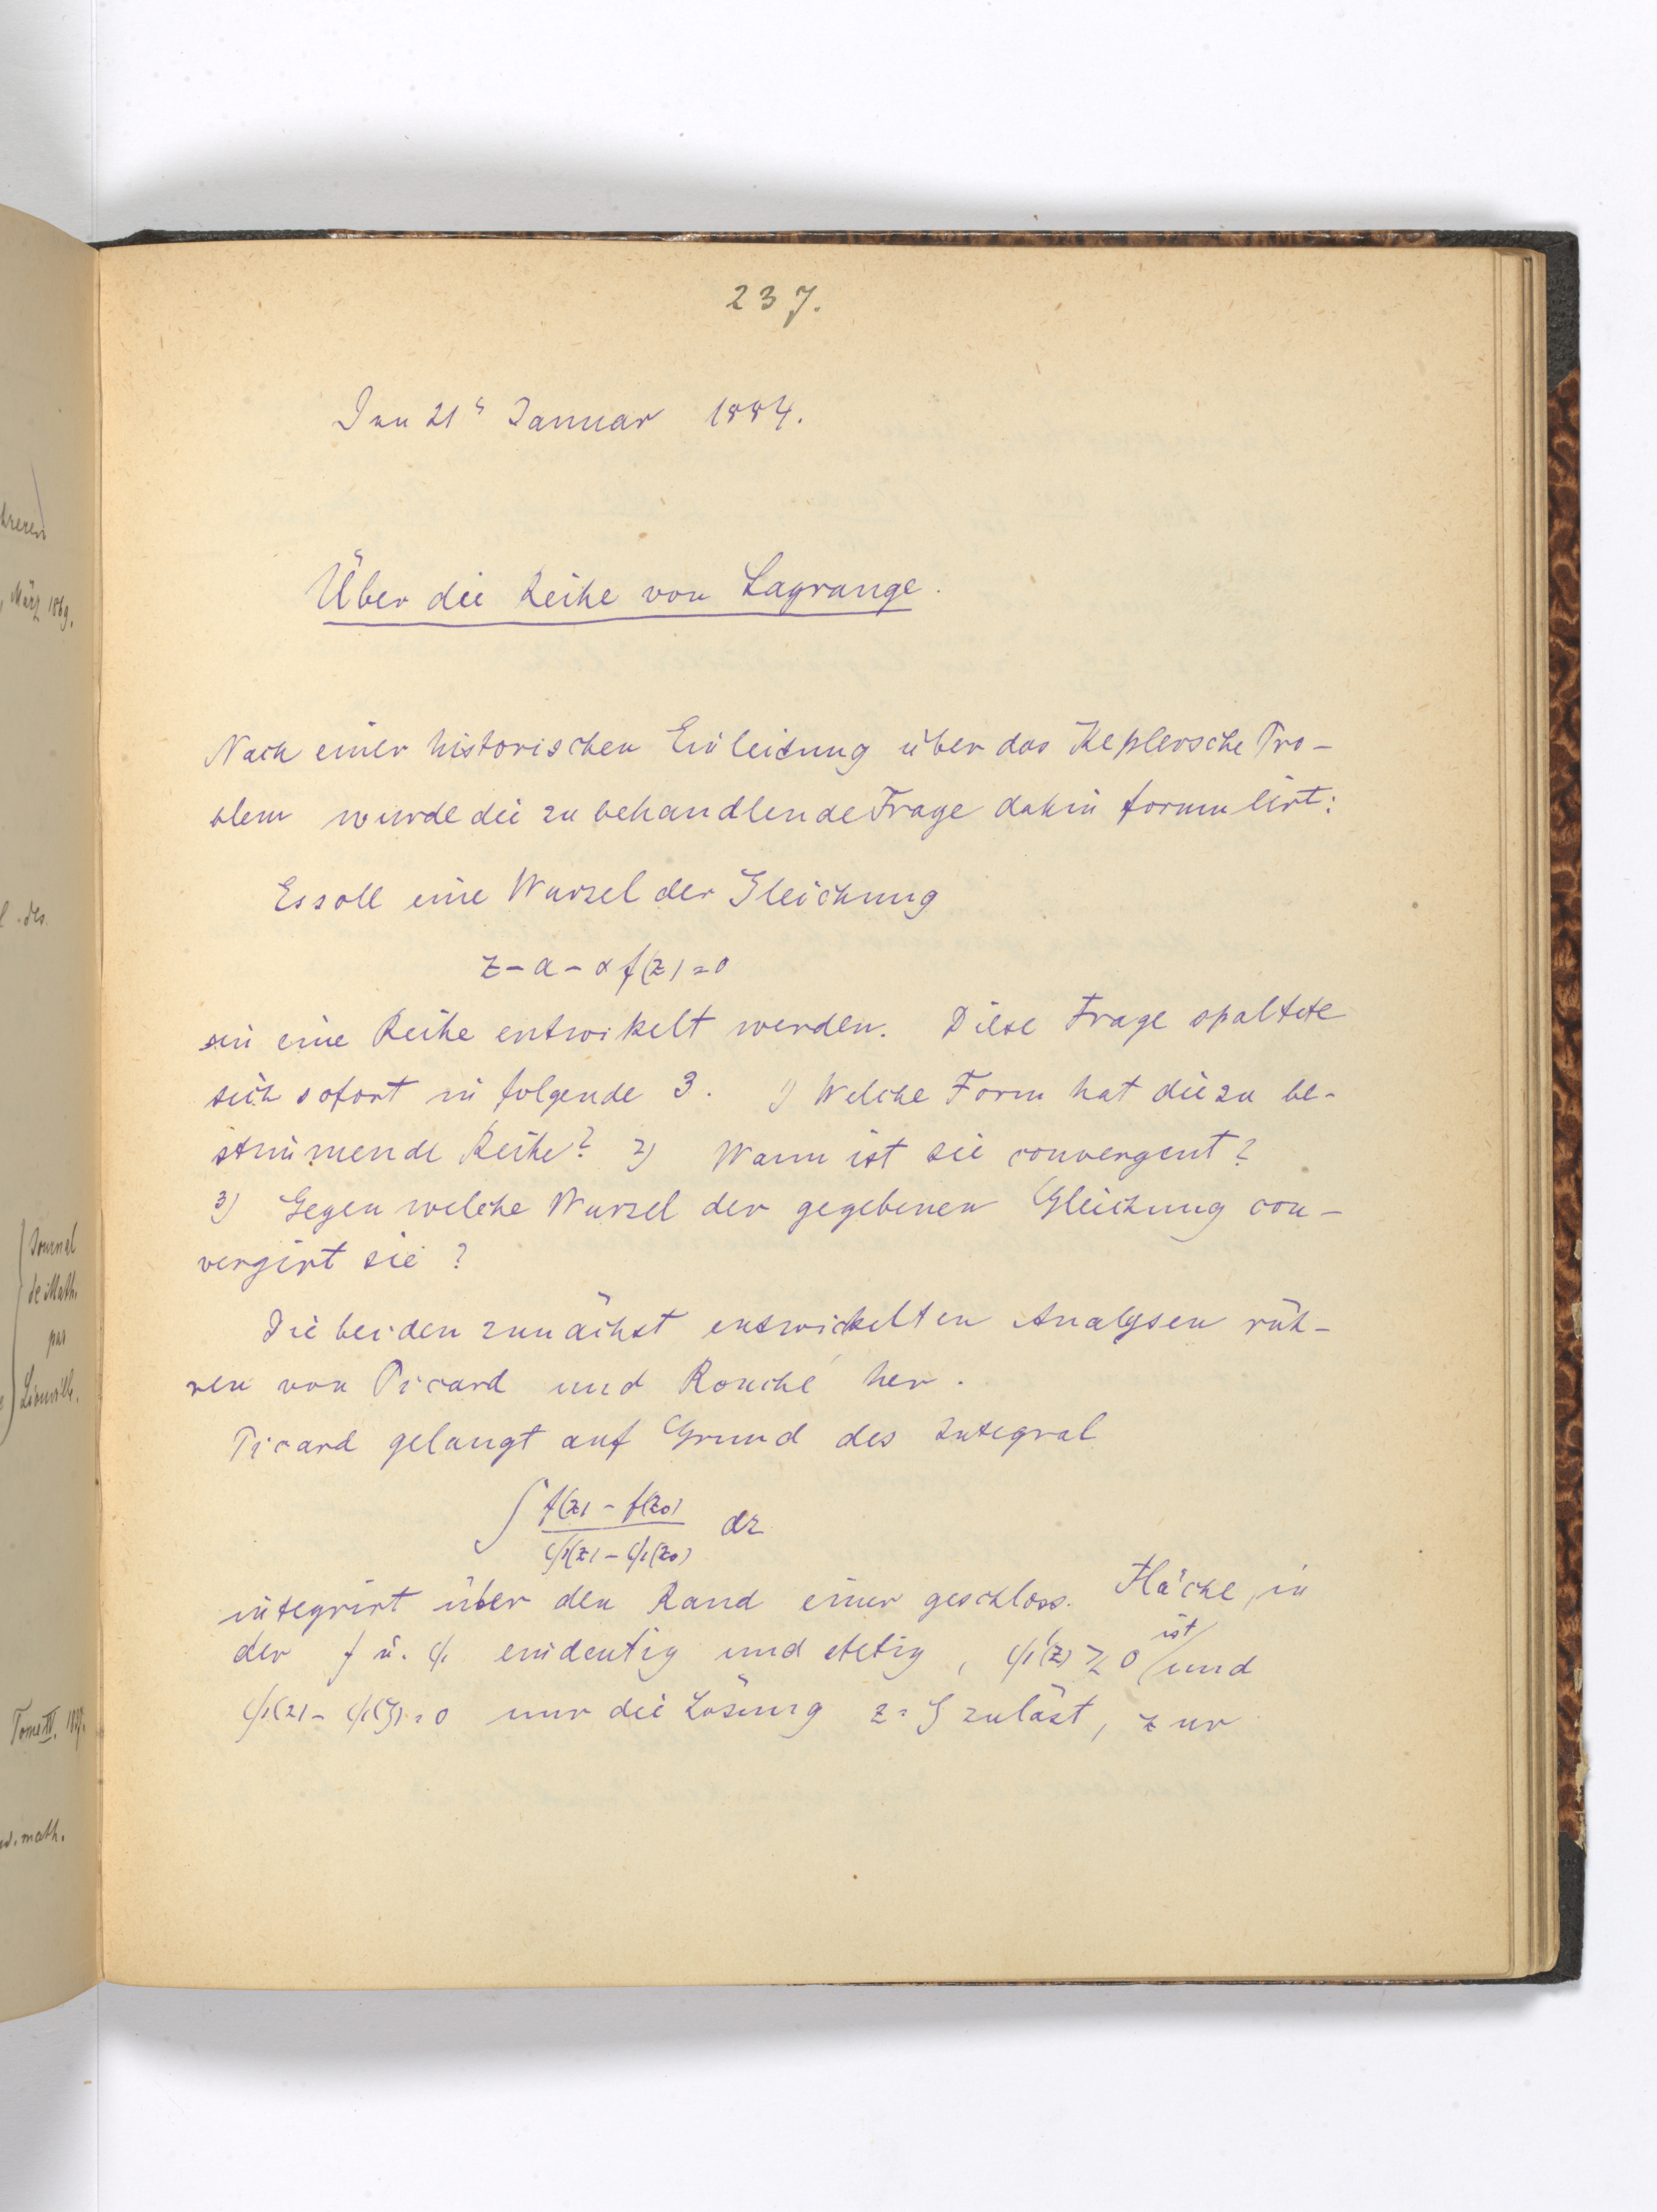 237.
Den 21ᵗ Januar 1884.
Über die Reihe von Lagrange.
Nach einer historischen Einleitung über das Keplersche Pro-
blem wurde die zu behandlende Frage dahin formulirt:
Es soll eine Wurzel der Gleichung
z - a - α f(z) = 0
in eine Reihe entwikelt werden. Diese Frage spaltete
sich sofort in folgende 3. 1) Welche Form hat die zu be-
stimmende Reihe? 2) Wann ist sie convergent?
3) Gegen welche Wurzel der gegebenen Gleichung con-
vergirt sie?
Die beiden zunächst entwickelten Analysen rüh-
ren von Picard und Rouché her.
Picard gelangt auf Grund des Integral
∫ f(z) - f(z₀) / φ(z) - φ(z₀) dz
integrirt über den Rand einer geschloss. Fläche, in
der f u. φ eindeutig und stetig, φ'(z) ≷ 0 ist und
φ(z) - φ(ζ) = 0 nur die Lösung z = ζ zuläst, zur
März 1869.
des
Journal
de Math.
par
Liouville.
Tome III.
math.